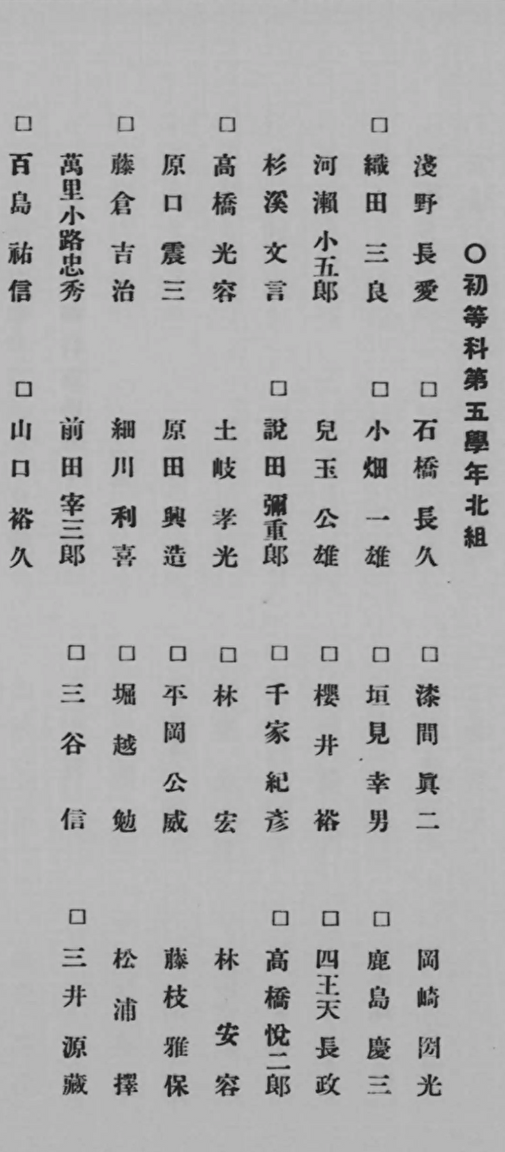 〇初等科第五學年北組
淺野長愛 □石橋長久 □漆間眞二 岡崎光
□織田三良 □小畑一雄 □垣見幸男 □鹿島慶三
河瀨小五郎 兒玉公雄 □櫻井裕 □四王天長政
杉溪文言 □說田彌重郎 □千家紀彥 □高橋悅二郎
□高橋光容 土岐孝光 □林宏 林安容
原口震三 原田興造 □平岡公威 藤枝雅保
□藤倉吉治 細川利喜 □堀越勉 松浦擇
萬里小路忠秀 前田宰三郎 □三谷信 □三井源藏
□百島祐信 □山口裕久